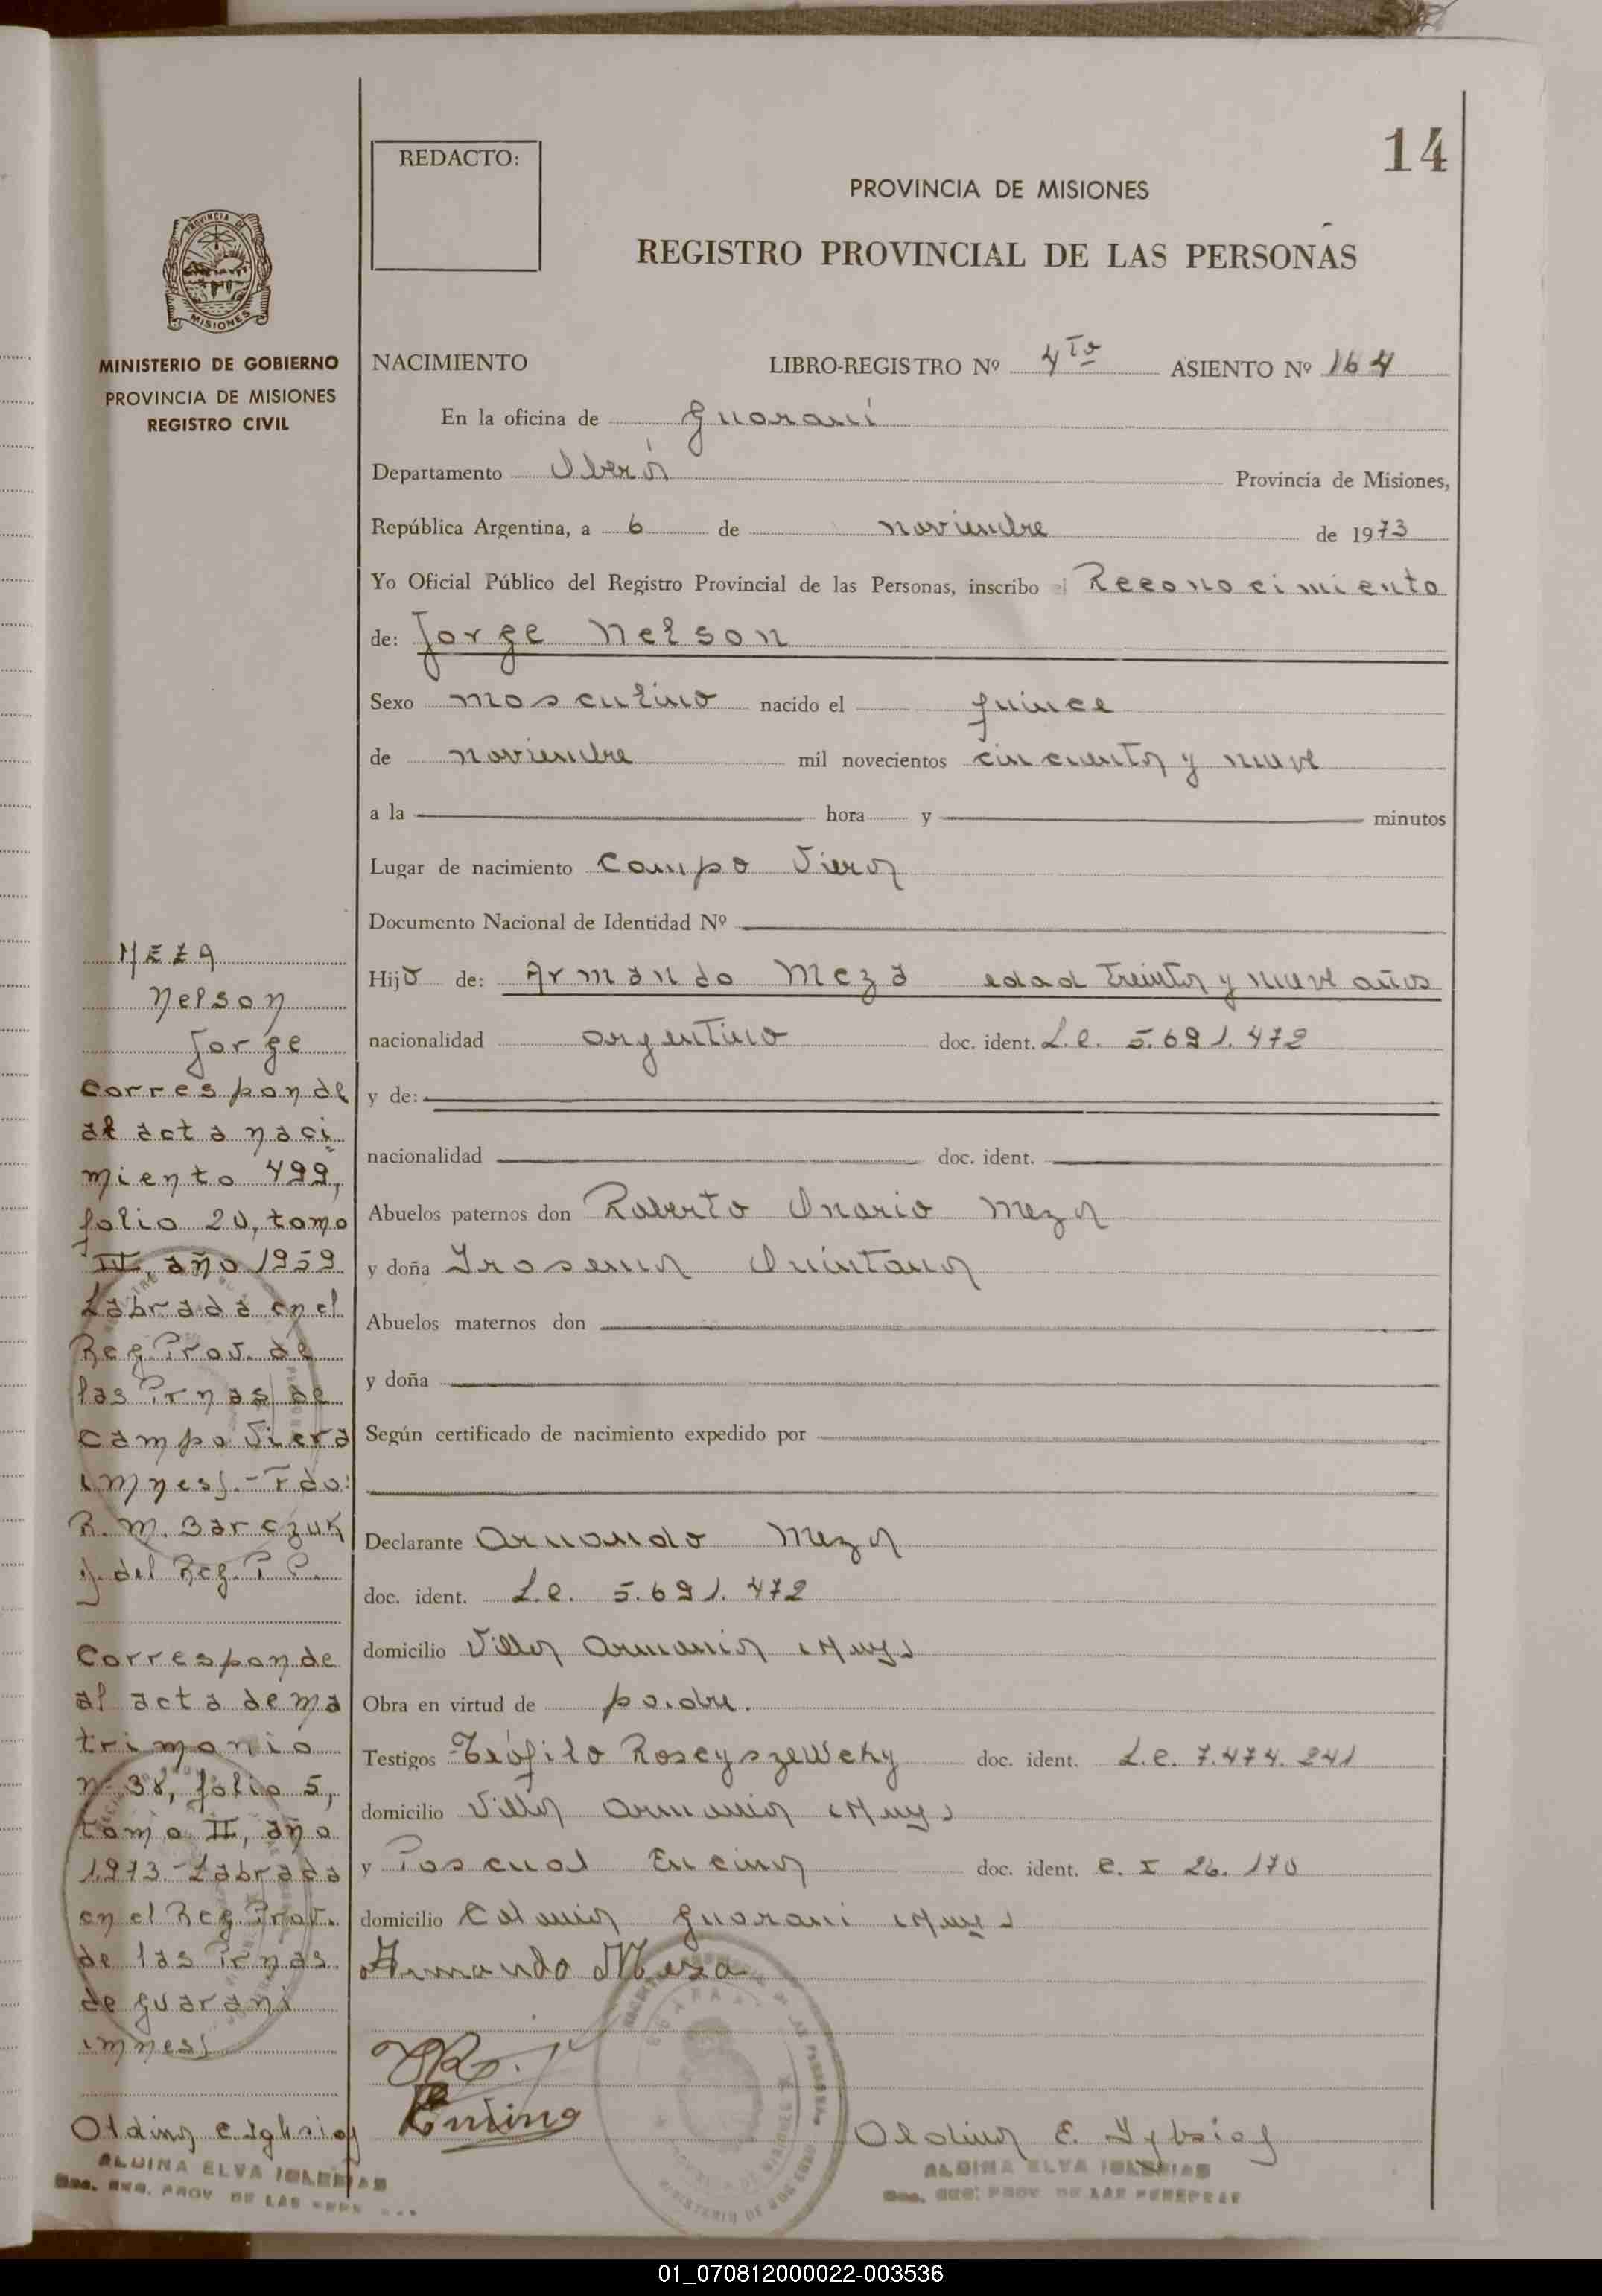 14
REDACTO:
PROVINCIA DE MISIONES
REGISTRO PROVINCIAL DE LAS PERSONAS
PROVINCIA DE
MISIONES
MINISTERIO DE GOBIERNO
PROVINCIA DE MISIONES
REGISTRO CIVIL
NACIMIENTO LIBRO-REGISTRO Nº 4to ASIENTO Nº 164
En la oficina de Guaraní
Departamento Oberá Provincia de Misiones,
República Argentina, a 6 de noviembre de 1973
Yo Oficial Público del Registro Provincial de las Personas, inscribo el Reconocimiento
de: Jorge Nelson
Sexo masculino nacido el quince
de noviembre mil novecientos cincuenta y nueve
a la hora y minutos
Lugar de nacimiento Campo Viera
Documento Nacional de Identidad Nº
Hijo de: Armando Meza edad treinta y nueve años
nacionalidad argentino doc. ident. L.E. 5.691.472
y de:
nacionalidad doc. ident.
Abuelos paternos don Roberto Onario Meza
y doña Quintana
Abuelos maternos don
y doña
Según certificado de nacimiento expedido por
Declarante Armando Meza
doc. ident. L.E. 5.691.472
domicilio Villa Armonia (Mnes)
Obra en virtud de padre.
Testigos Teófilo doc. ident. L.E. 7.474.241
domicilio Villa Armonia (Mnes)
y Pascual Encina doc. ident. C. I 26.170
domicilio Colonia Guarani (Mnes)
Armando Meza
Encina
Aldina E. Iglesias
ALDINA ELVA IGLESIAS
MEZA
Nelson
Jorge
Corresponde
al acta naci
miento 499,
folio 20, tomo
II, año 1959
Labrada en el
Reg. Prov. de
las Prnas de
Campo Viera
(Mnes).-Fdo:
R. M. Barczuk
J. del Reg. P. P.
Corresponde
al acta de ma
trimonio
nº 38, folio 5,
tomo II, año
1973.-Labrada
en el Reg. Prov.
de las Prnas.
de guarani
(Mnes)
Aldina E. Iglesias
ALDINA ELVA IGLESIAS
REG. PROV DE LAS
01_070812000022-003536